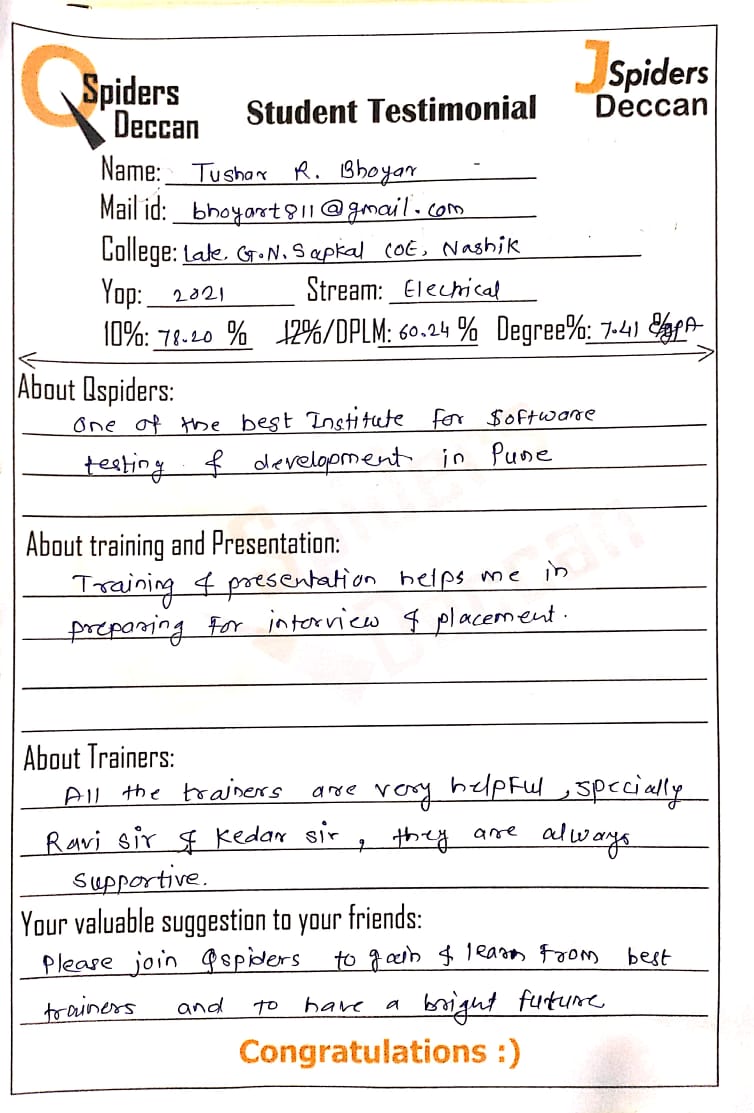 QSpiders
Deccan
Student Testimonial
JSpiders
Deccan
Name: Tushar R. Bhoyar
Mail id: bhoyart811@gmail.com
College: Late. G.N. Sapkal COE, Nashik
Yop: 2021 Stream: Electrical
10%: 78.20 % 12%/DPLM: 60.24 % Degree%: 7.41 CgpA
About Qspiders:
One of the best Institute for Software
testing & development in Pune
About training and Presentation:
Training & presentation helps me in
preparing for interview & placement.
About Trainers:
All the trainers are very helpful, specially
Ravi sir & Kedar sir, they are always
supportive.
Your valuable suggestion to your friends:
Please join Qspiders to gain & learn from best
trainers and to have a bright future
Congratulations :)